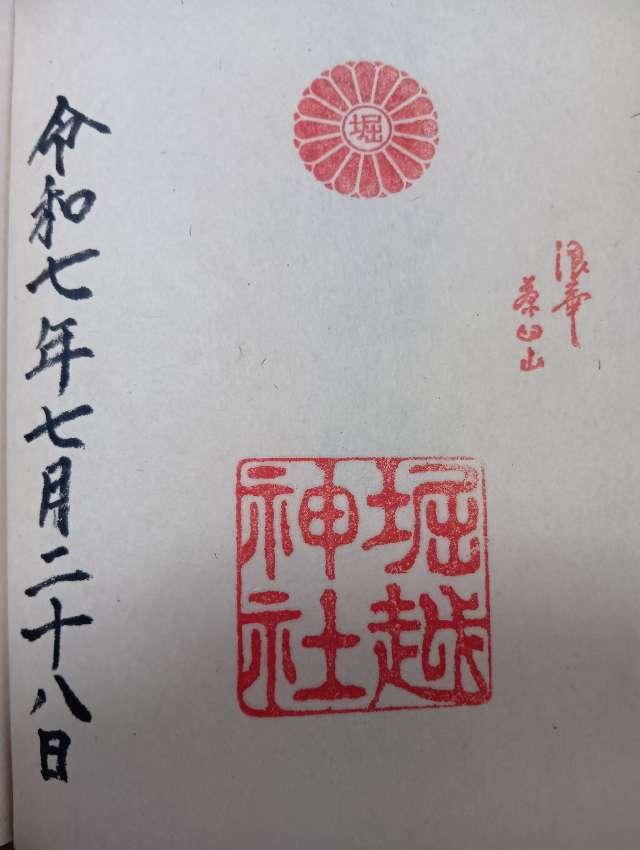 堀
浪華
茶臼山
堀越
神社
令和七年七月二十八日